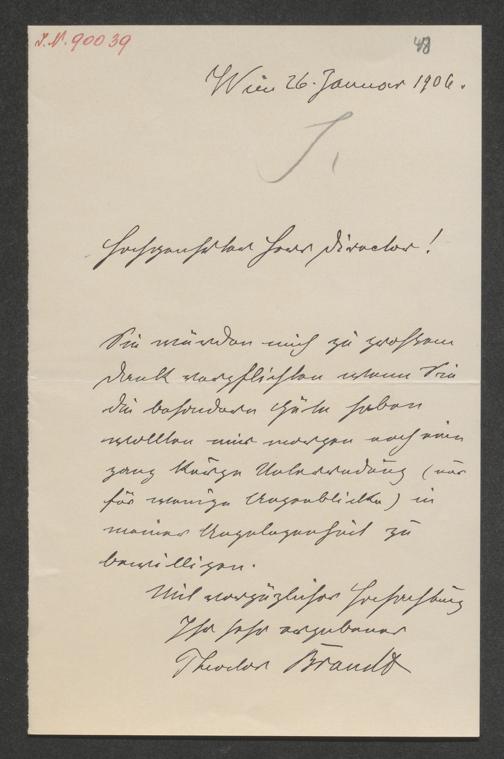 I.N. 90039
48
Wien 26. Januar 1906.
Hochgeehrter Herr Director!
Sie würden mich zu großem
Dank verpflichten wenn Sie
die besondere Güte haben
wollten mir morgen noch eine
ganz kurze Unterredung (nur
für wenige Augenblicke) in
meiner Angelegenheit zu
bewilligen.
Mit vorzüglicher Hochachtung
Ihr sehr ergebener
Theodor Brandt